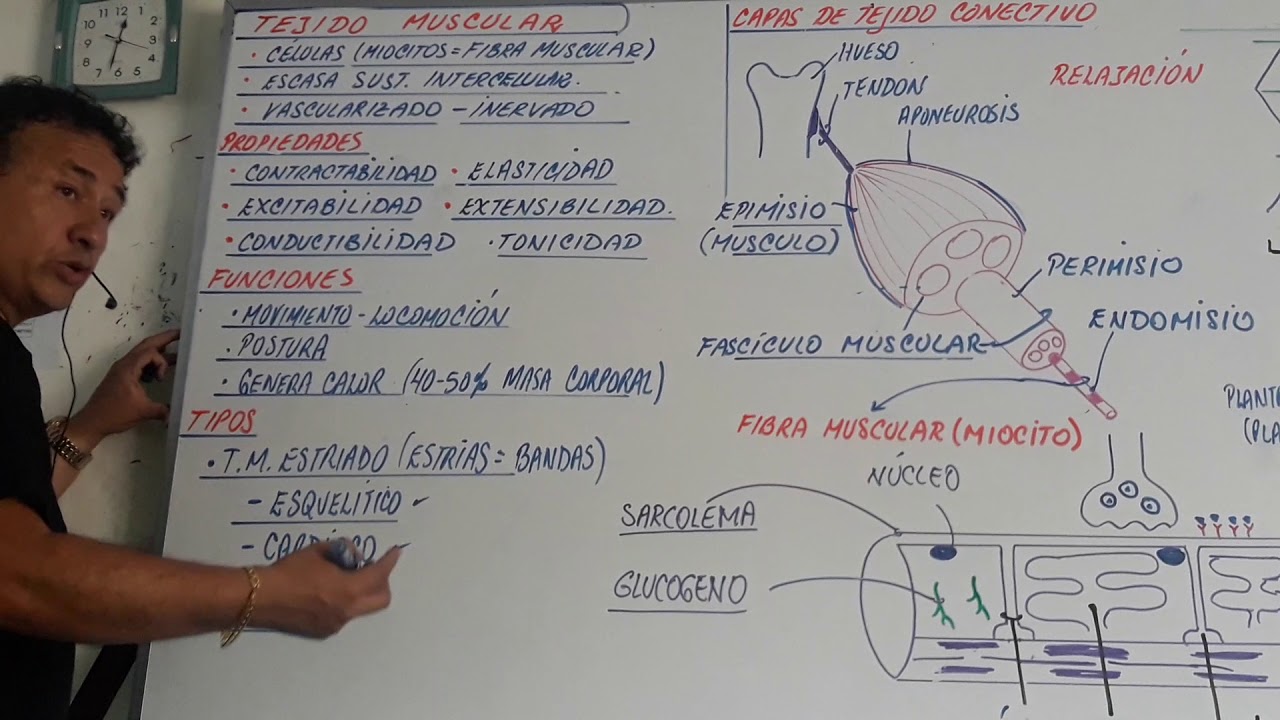 TEJIDO MUSCULAR
• CÉLULAS (MIOCITOS = FIBRA MUSCULAR)
• ESCASA SUST. INTERCELULAR.
• VASCULARIZADO - INERVADO
PROPIEDADES
• CONTRACTABILIDAD • ELASTICIDAD
• EXCITABILIDAD • EXTENSIBILIDAD.
• CONDUCTIBILIDAD • TONICIDAD
FUNCIONES
• MOVIMIENTO - LOCOMOCIÓN
• POSTURA
• GENERA CALOR (40-50% MASA CORPORAL)
TIPOS
• T.M. ESTRIADO (ESTRIAS = BANDAS)
- ESQUELÍTICO
CAPAS DE TEJIDO CONECTIVO
HUESO
TENDON
APONEUROSIS
RELAJACIÓN
EPIMISIO
(MUSCULO)
PERIMISIO
ENDOMISIO
FASCÍCULO MUSCULAR
FIBRA MUSCULAR (MIOCITO)
NÚCLEO
SARCOLEMA
GLUCOGENO
12
11
1
10
2
9
3
8
4
7
6
5